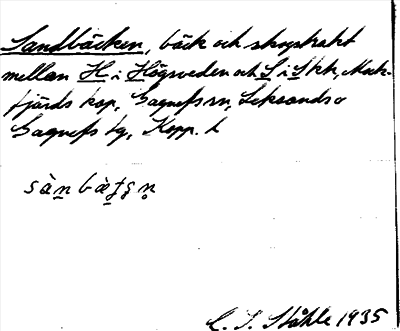 Sandbäcken, bäck och skogstrakt
mellan H i Högsveden och S i Skh, Mock-
fjärds kap, Gagnefs sn, Leksands o
Gagnefs tg, Kopp. l
sànbæ̀tʂn̥
C. I. Ståhle 1935